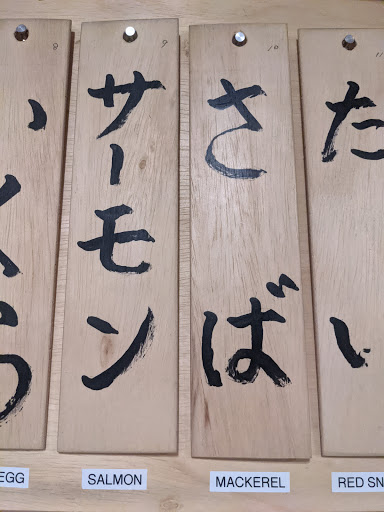 8
9
サーモン
10
さば
11
たい
EGG
SALMON
MACKEREL
RED SN